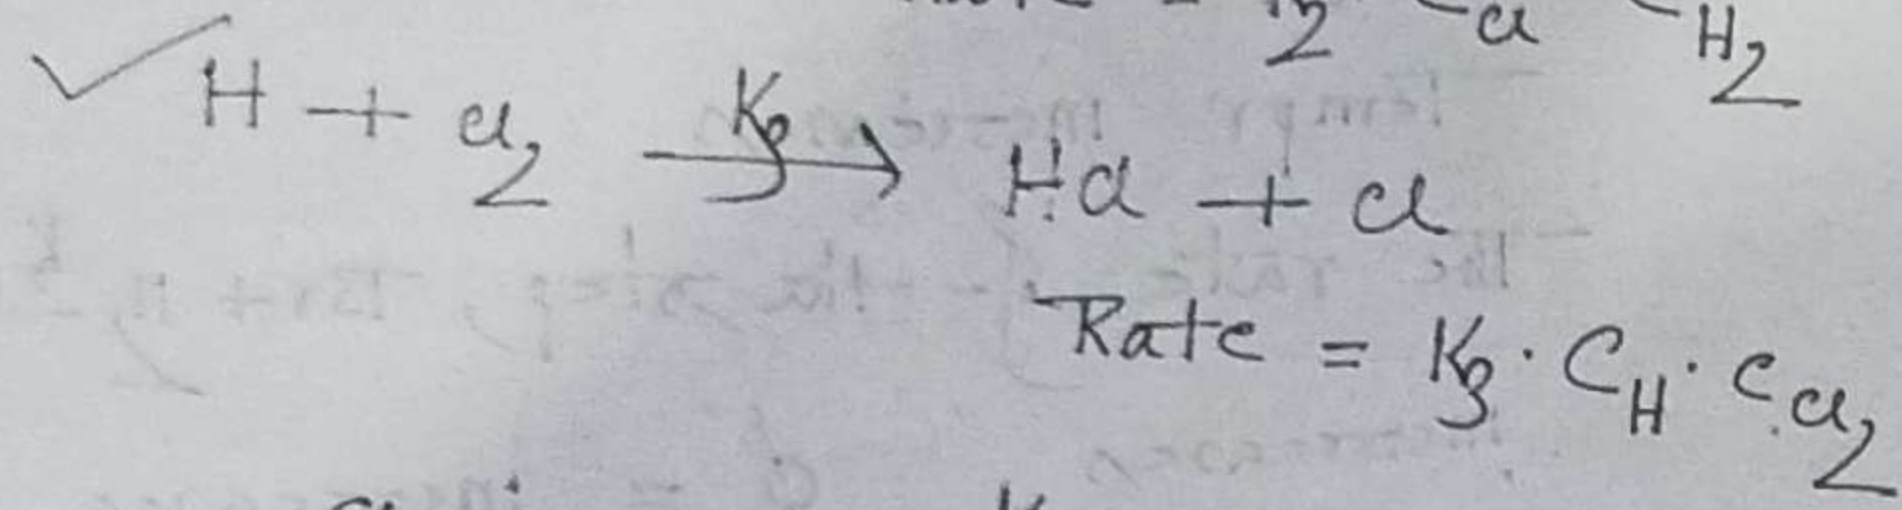 2 Cl H2
✓ H + Cl2 —K3→ HCl + Cl
Rate = K3 · CH · CCl2